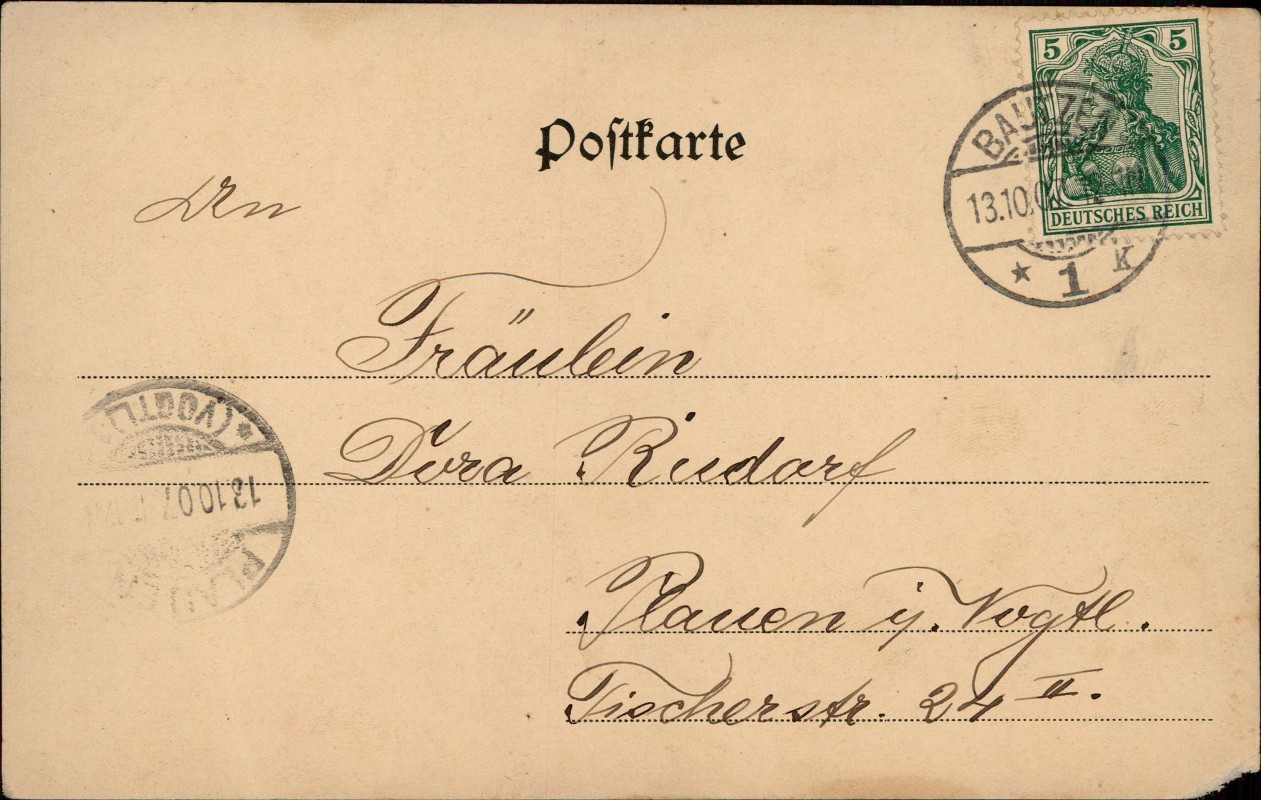 Postkarte
5 5
DEUTSCHES REICH
BAUTZEN
13.10.07
* 1 k
An
Fräulein
Dora Rudorf
Plauen i. Vogtl.
Fischerstr. 24 II.
* (VOGTL)
13.10.07
PLAUEN